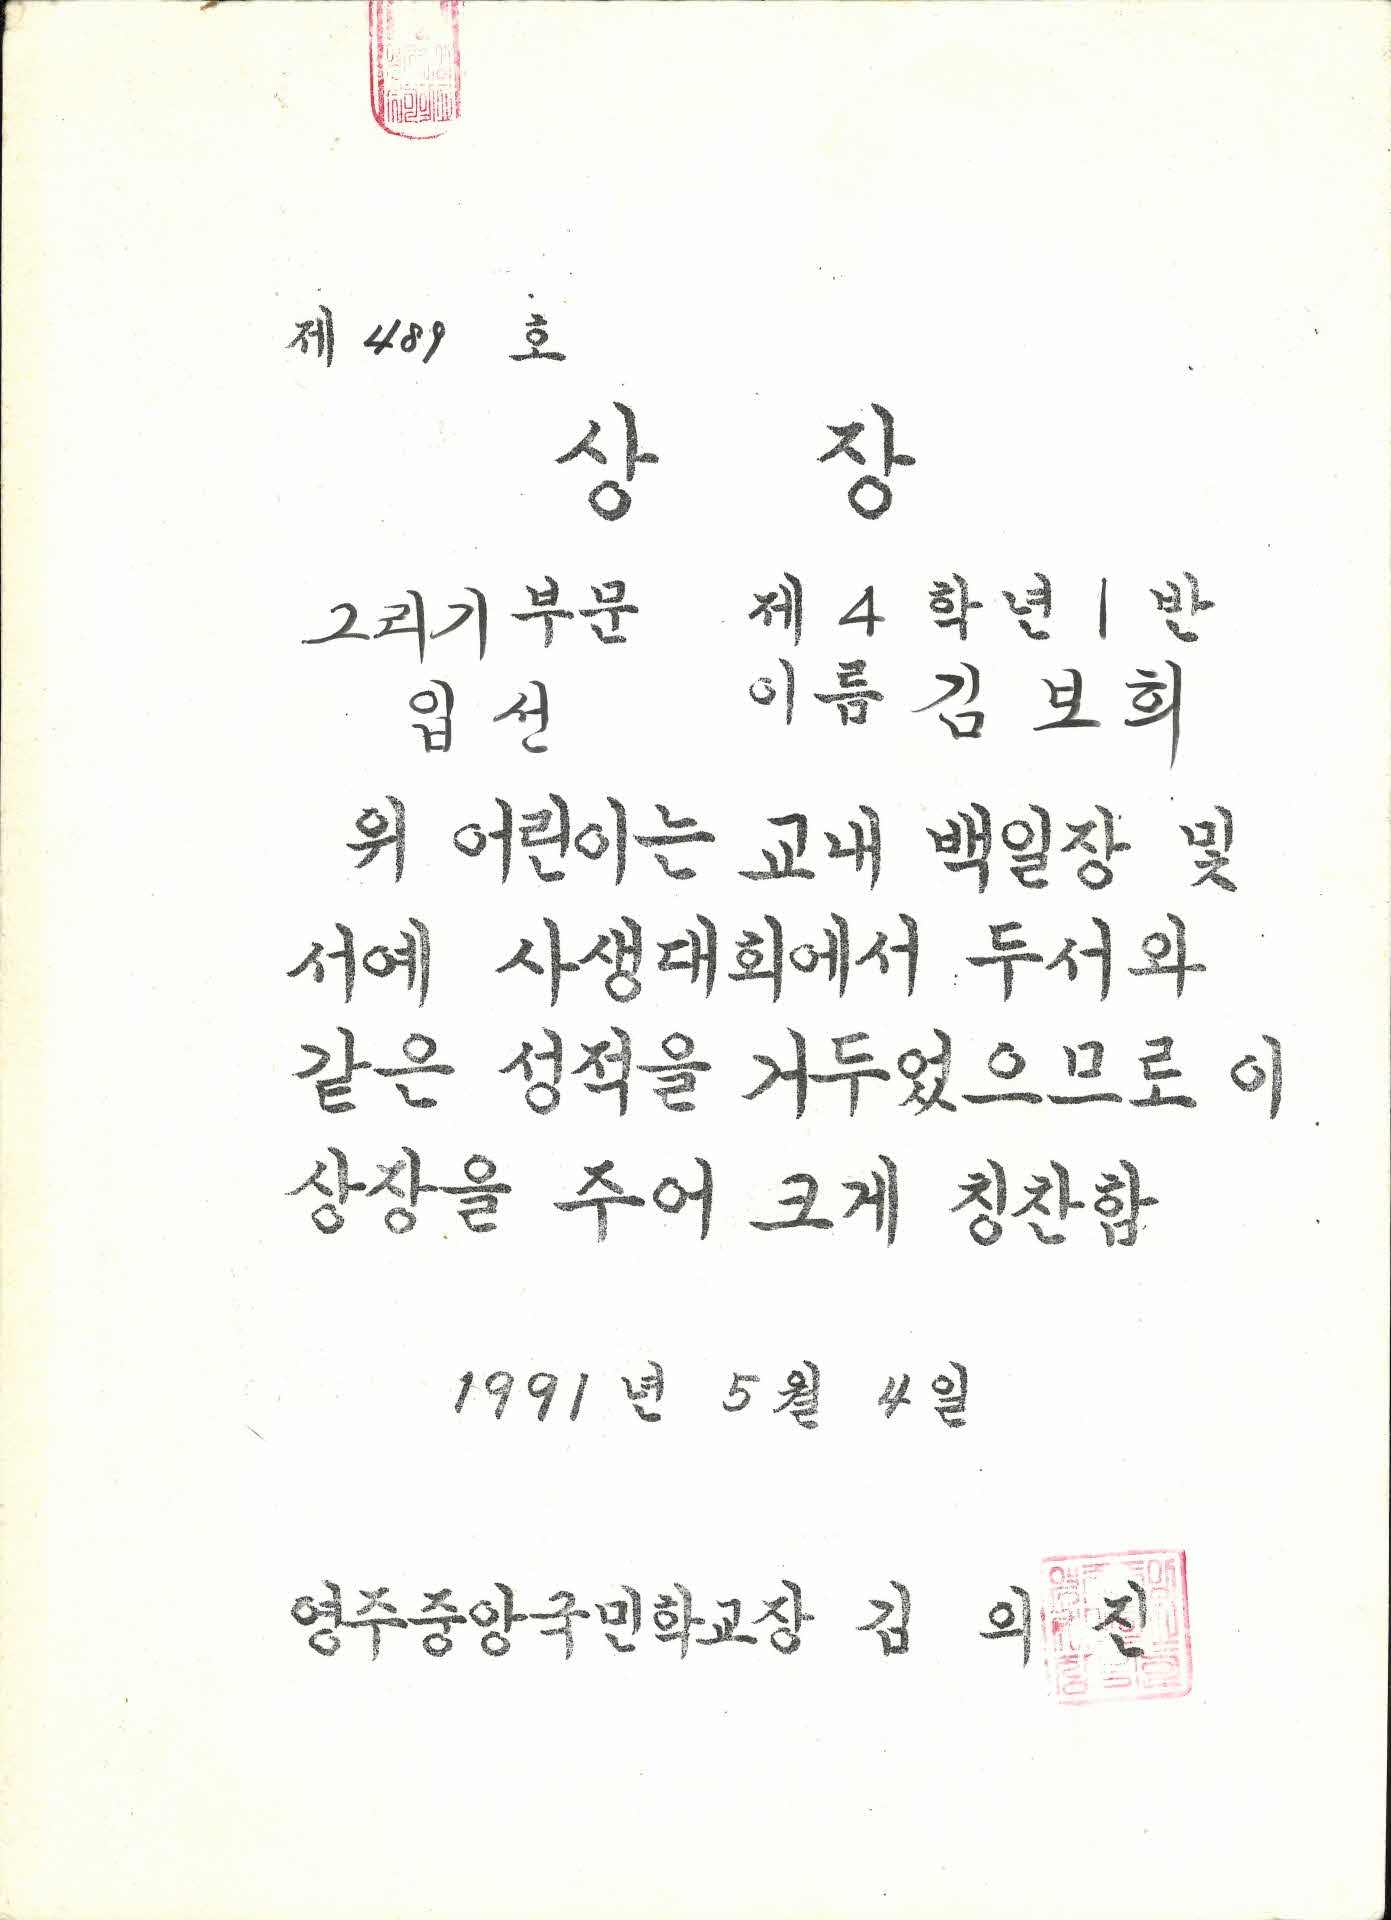 제 489 호
상 장
그리기 부문 제 4 학년 1 반
입 선 이름 김 보 희
위 어린이는 교내 백일장 및
서예 사생대회에서 두서와
같은 성적을 거두었으므로 이
상장을 주어 크게 칭찬함
1991 년 5 월 4 일
영주중앙국민학교장 김 의 진